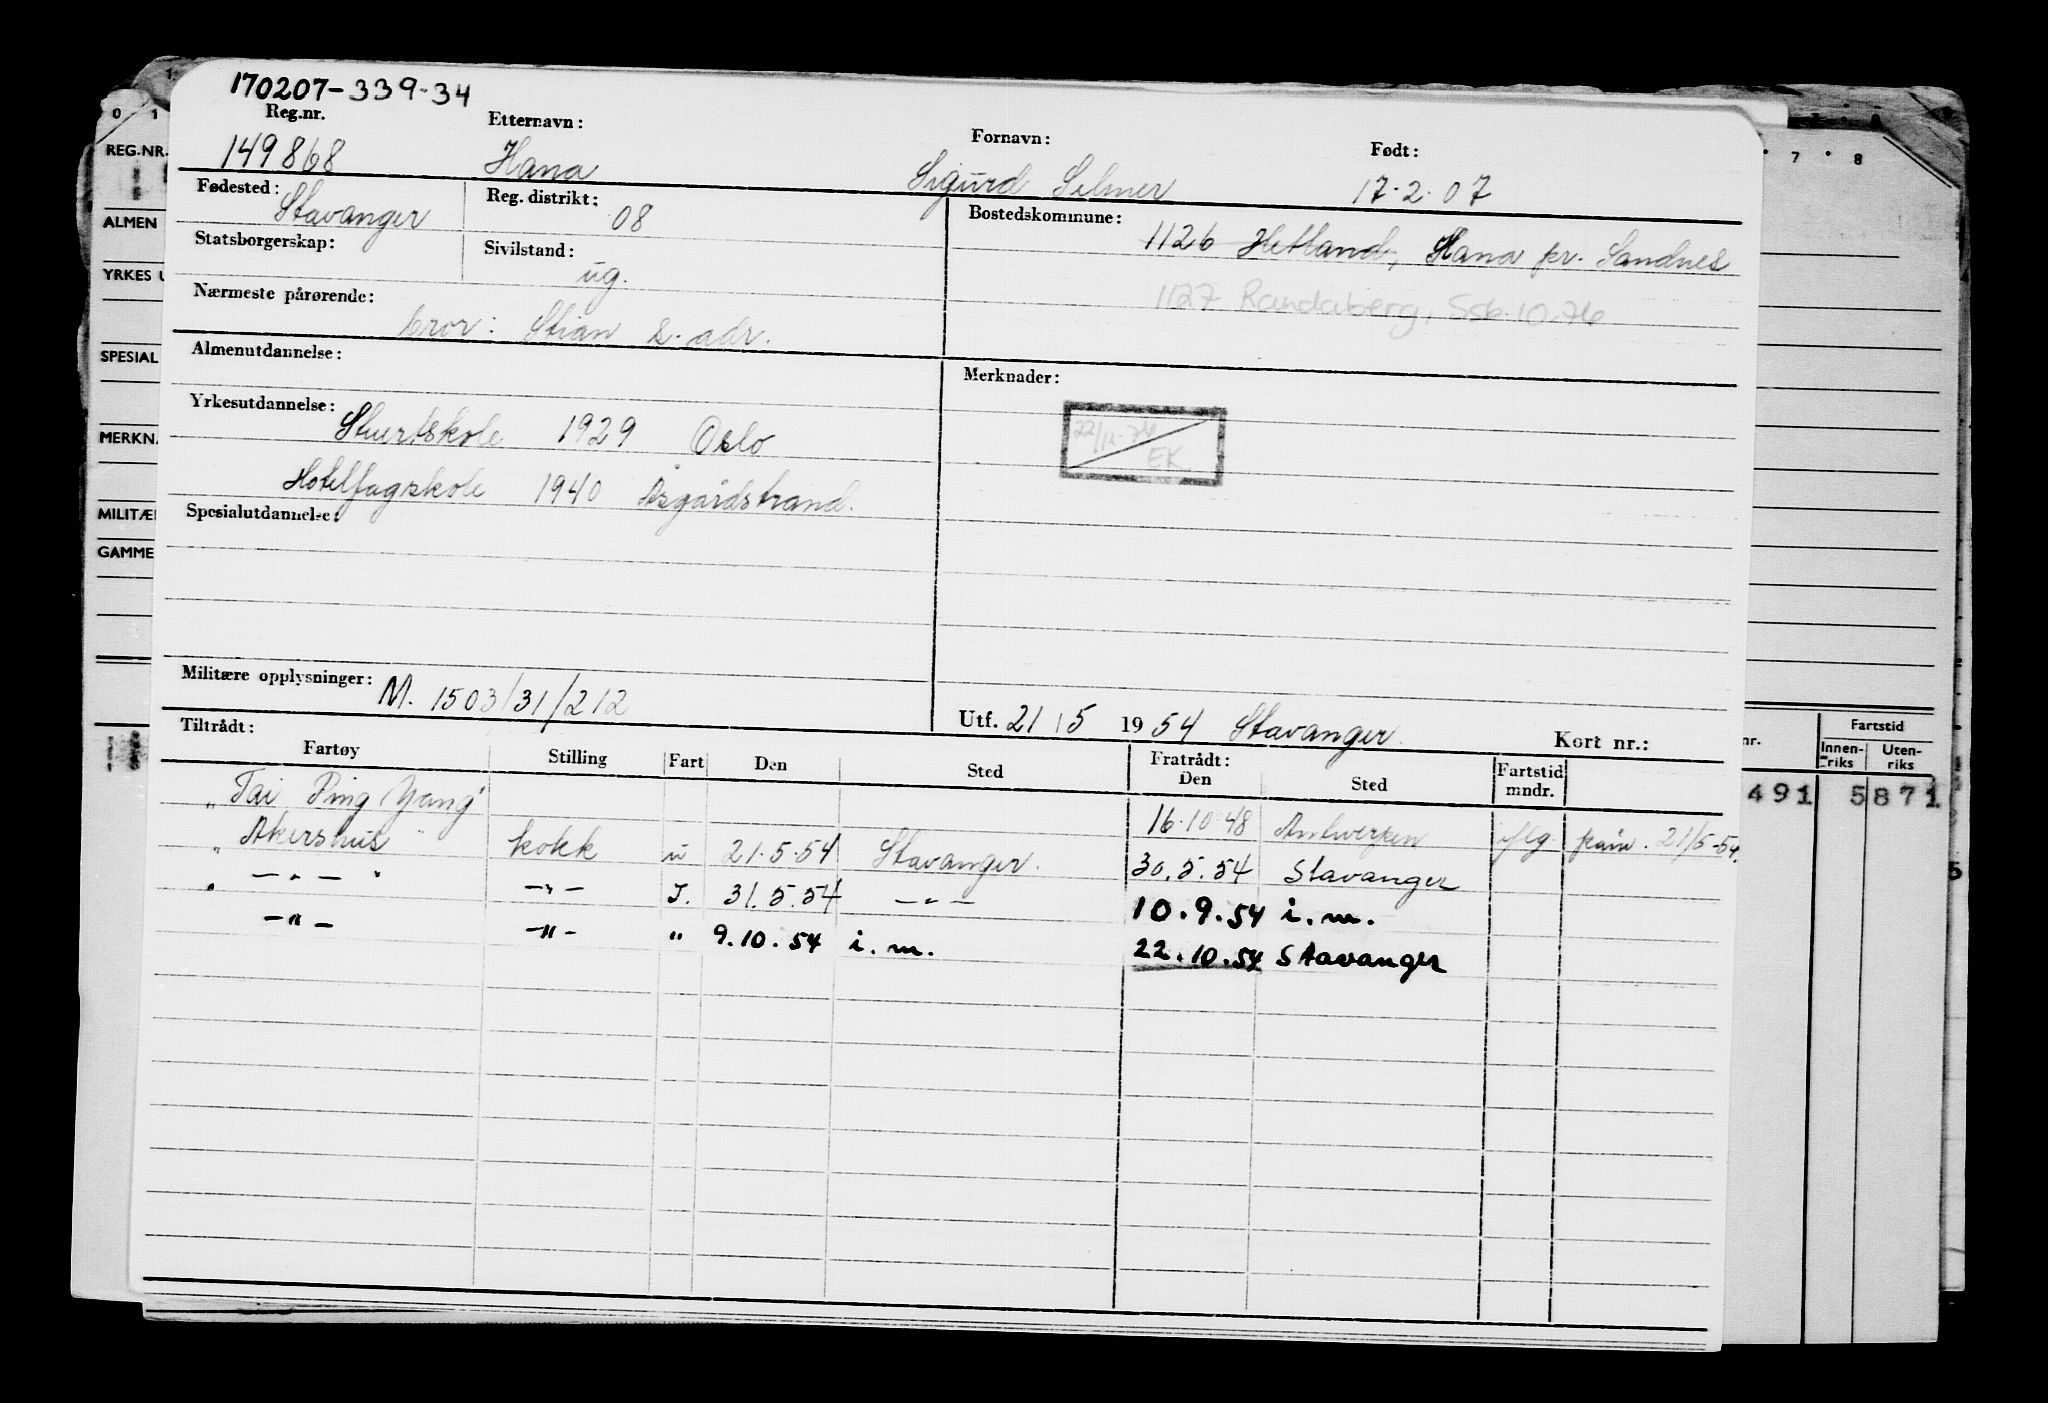 170207-339-34
Reg.nr. Etternavn: Fornavn: Født:
149868 Hana Sigurd Selmer 17.2.07
Fødested: Stavanger Reg. distrikt: 08 Bostedskommune: 1126 Hetland, Hana pr. Sandnes
Statsborgerskap: Sivilstand: ug.
1127 Randaberg, Ssb. 10.76
Nærmeste pårørende: bror: Stian s. adr.
Almenutdannelse: Merknader:
Yrkesutdannelse: Stuertskole 1929 Oslo
22/12-74 EK
Hotelfagskole 1940 Åsgårdstrand.
Spesialutdannelse:
Militære opplysninger: M. 1503/31/212
Utf. 21/5 1954 Stavanger. Kort nr.:
Tiltrådt: Fratrådt:
Fartøy Stilling Fart Den Sted Den Sted Fartstid mndr.
"Tai Ping Yang" 16.10.48 Antwerpen iflg. 21/5-54.
"Akershus" kokk u 21.5.54 Stavanger. 30.5.54 Stavanger
" —"— " —"— I. 31.5.54 —"— 10.9.54 i.m.
—"— —"— " 9.10.54 i.m. 22.10.54 Stavanger
0 1
REG.NR.
ALMEN
YRKES U
SPESIAL
MERKNA
MILITÆR
GAMME
7 8
nr. Fartstid
Innen-riks Uten-riks
491 5871
5